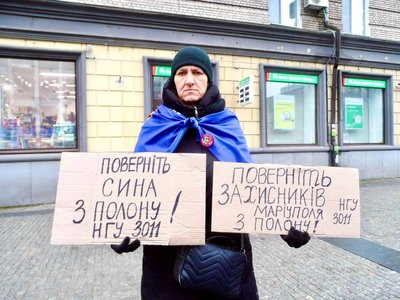 ПОВЕРНІТЬ
СИНА
З ПОЛОНУ!
НГУ 3011
ПОВЕРНІТЬ
ЗАХИСНИКІВ НГУ
МАРІУПОЛЯ 3011
З ПОЛОНУ!